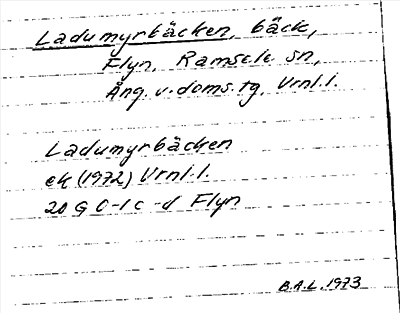 Ladumyrbäcken, bäck,
Flyn, Ramsele sn,
Ång. v. doms. tg, Vrnl. l.
Ladumyrbäcken
ek (1972) Vrnl. l.
20 G 0-1 c-d Flyn
B.A.L. 1973